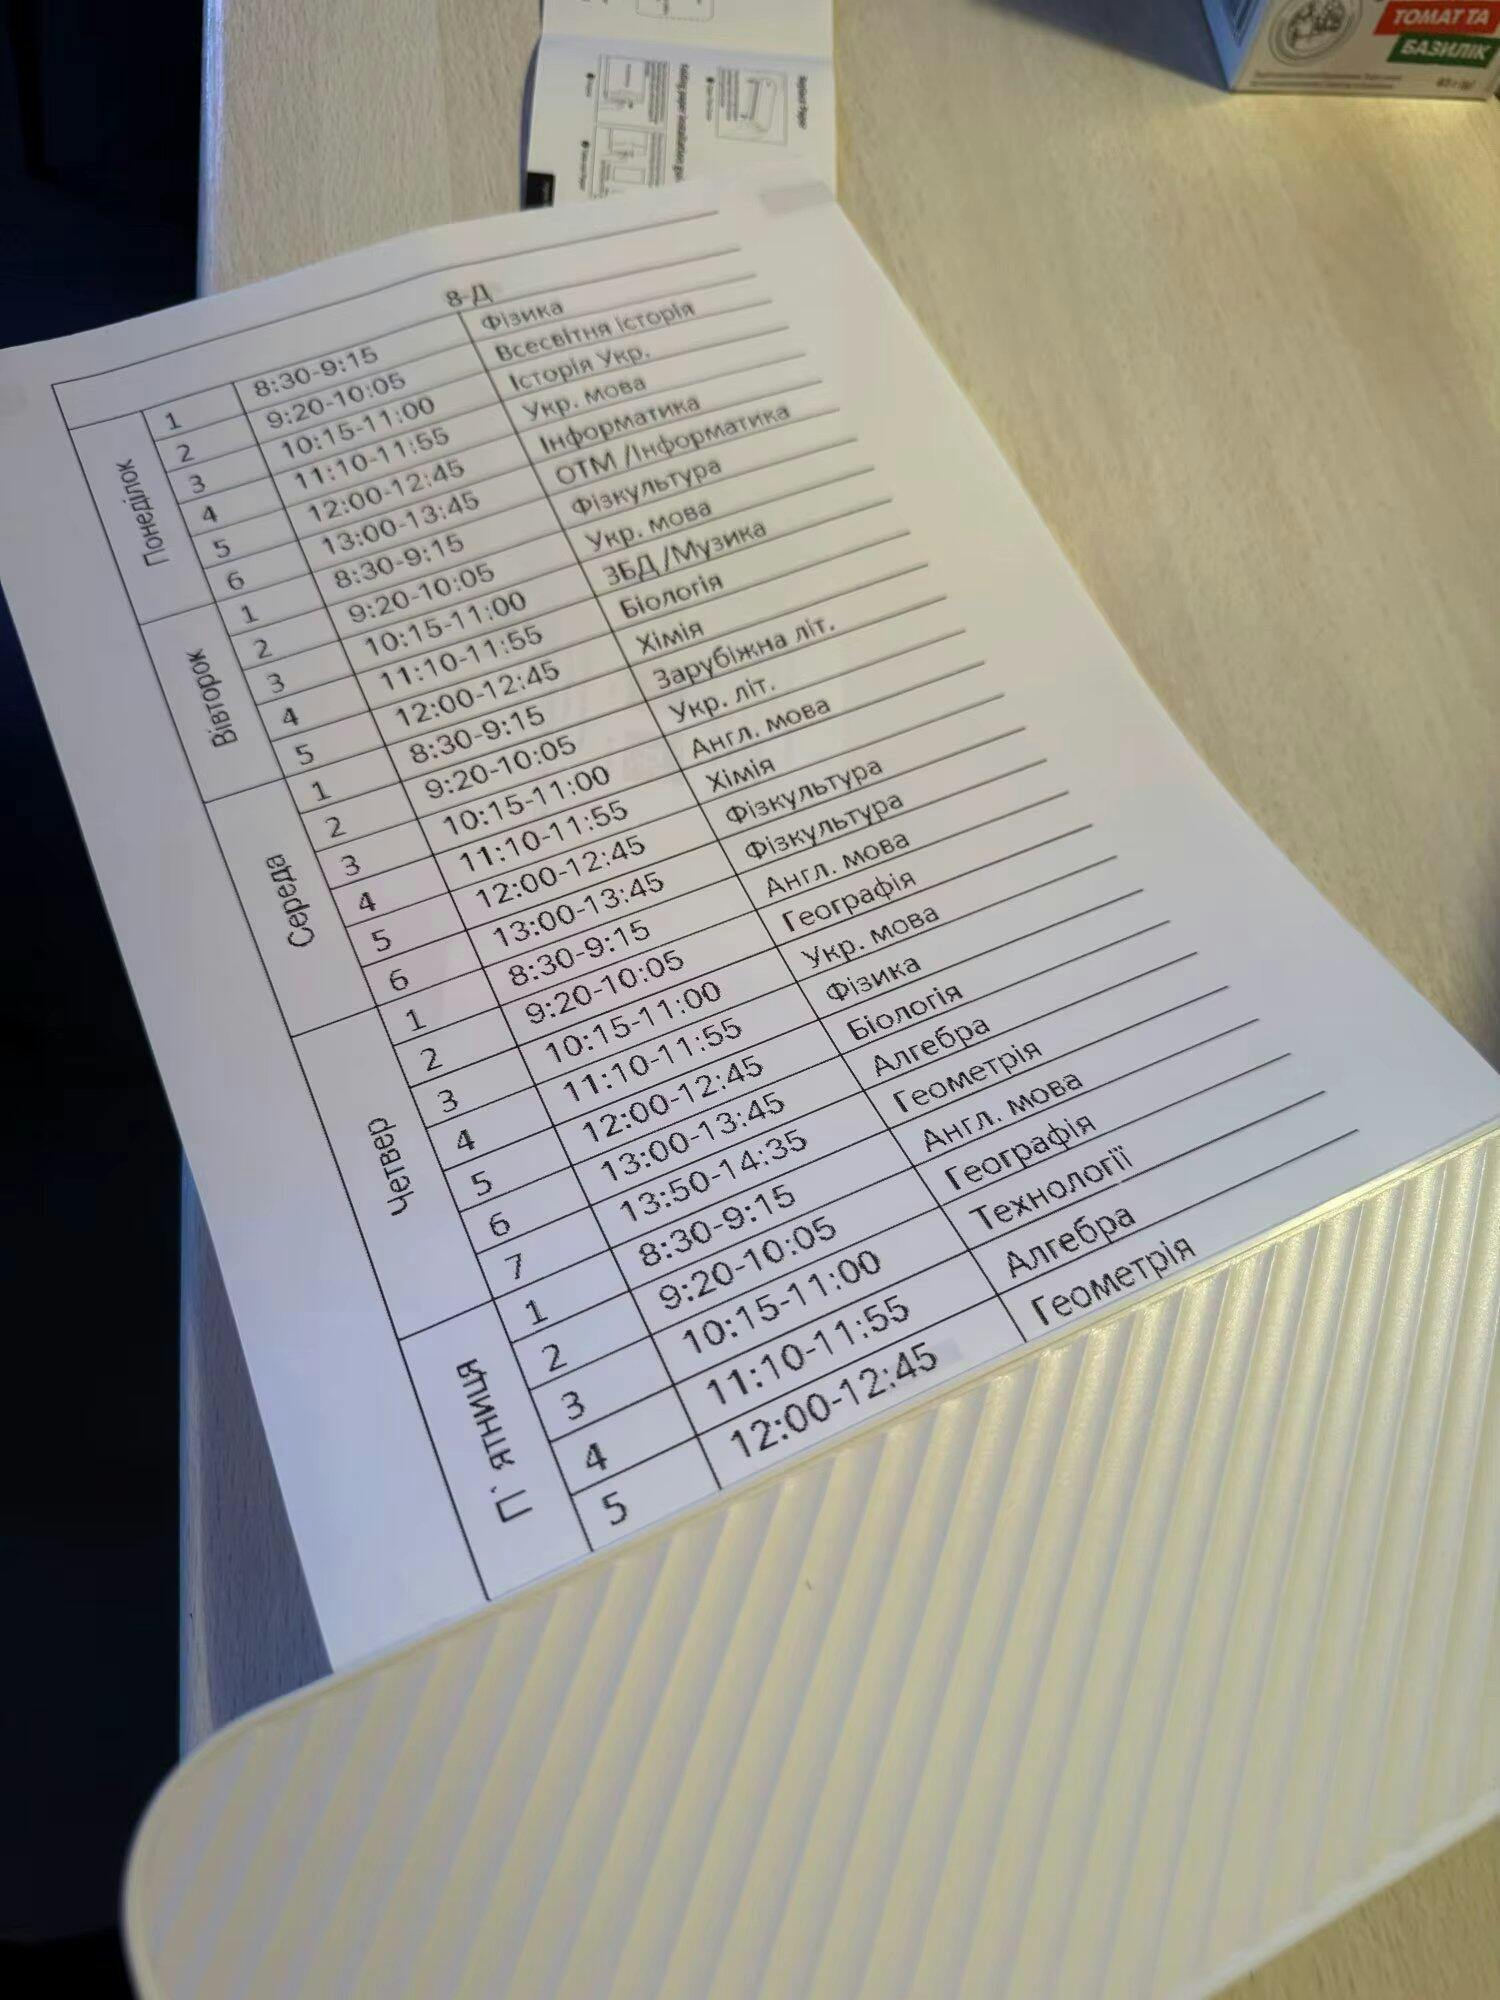 ТОМАТ ТА
БАЗИЛІК
8-Д
Понеділок
1 8:30-9:15 Фізика
2 9:20-10:05 Всесвітня історія
3 10:15-11:00 Історія Укр.
4 11:10-11:55 Укр. мова
5 12:00-12:45 Інформатика
6 13:00-13:45 ОТМ /Інформатика
Вівторок
1 8:30-9:15 Фізкультура
2 9:20-10:05 Укр. мова
3 10:15-11:00 ЗБД /Музика
4 11:10-11:55 Біологія
5 12:00-12:45 Хімія
Середа
1 8:30-9:15 Зарубіжна літ.
2 9:20-10:05 Укр. літ.
3 10:15-11:00 Англ. мова
4 11:10-11:55 Хімія
5 12:00-12:45 Фізкультура
6 13:00-13:45 Фізкультура
Четвер
1 8:30-9:15 Англ. мова
2 9:20-10:05 Географія
3 10:15-11:00 Укр. мова
4 11:10-11:55 Фізика
5 12:00-12:45 Біологія
6 13:00-13:45 Алгебра
7 13:50-14:35 Геометрія
П'ятниця
1 8:30-9:15 Англ. мова
2 9:20-10:05 Географія
3 10:15-11:00 Технології
4 11:10-11:55 Алгебра
5 12:00-12:45 Геометрія